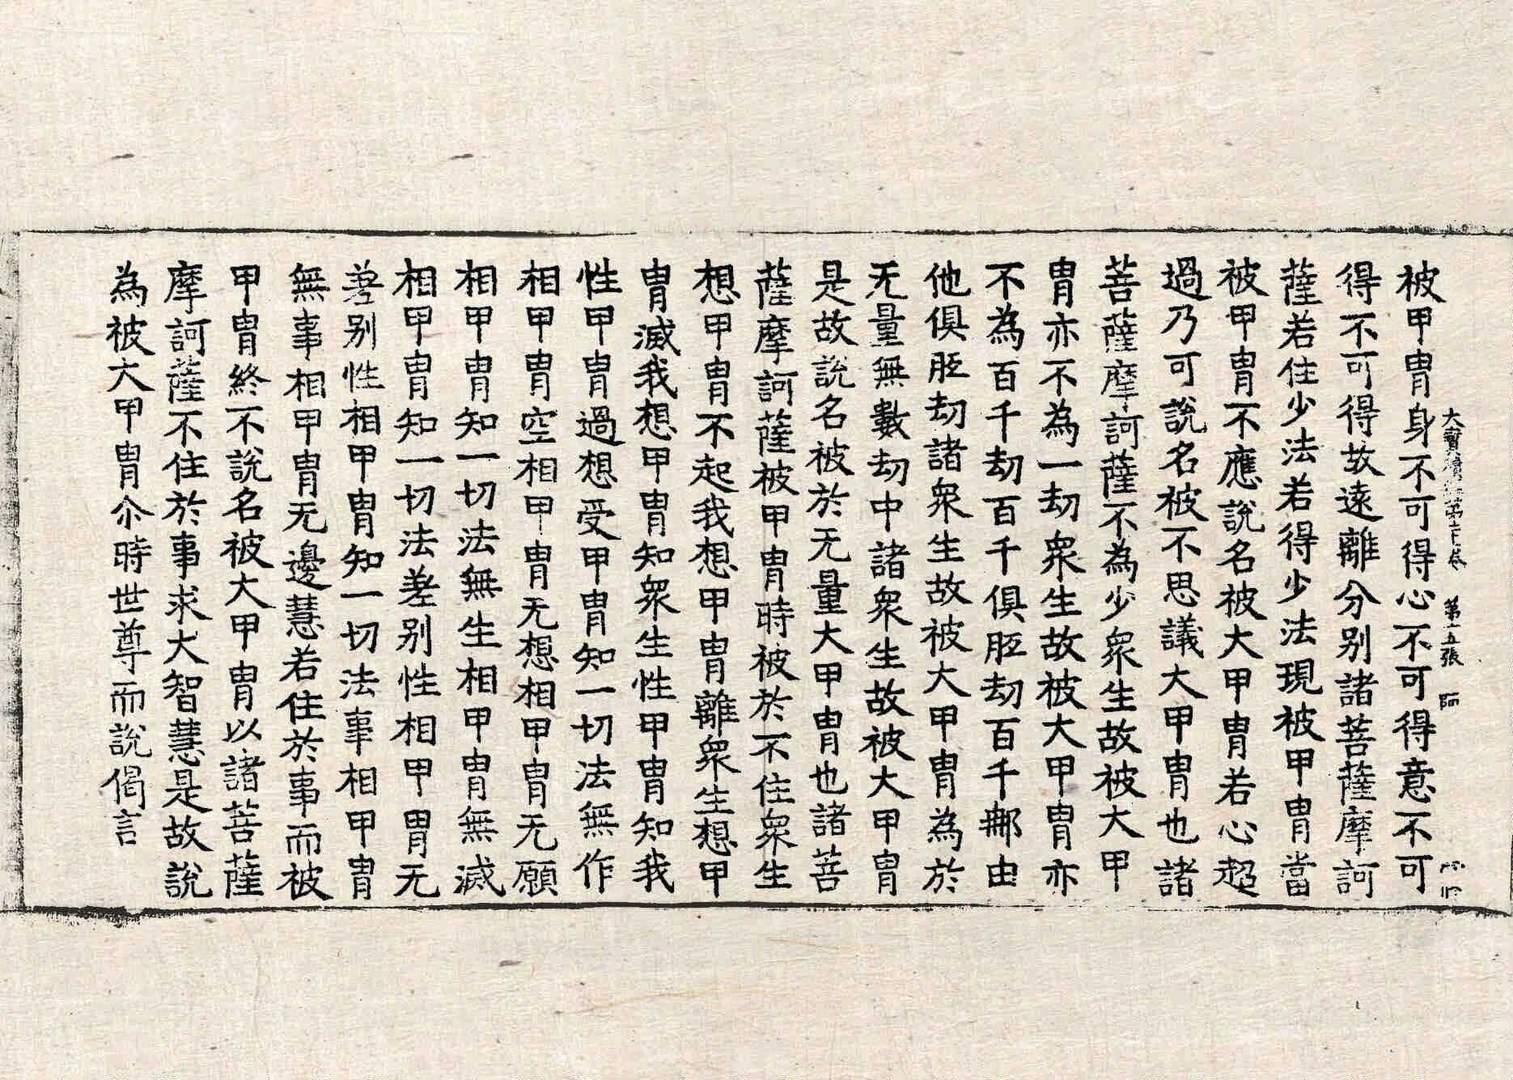 第十五張 阿
被甲冑身不可得心不可得意不可
得不可得故遠離分别諸菩薩摩訶
薩若住少法若得少法現被甲冑當
被甲冑不應說名被大甲冑若心超
過乃可說名被不思議大甲冑也諸
菩薩摩訶薩不為少衆生故被大甲
冑亦不為一劫衆生故被大甲冑亦
不為百千劫百千俱胝劫百千那由
他俱胝劫諸衆生故被大甲冑為於
无量無數劫中諸衆生故被大甲冑
是故說名被於无量大甲冑也諸菩
薩摩訶薩被甲冑時被於不住衆生
想甲冑不起我想甲冑離衆生想甲
冑滅我想甲冑知衆生性甲冑知我
性甲冑過想受甲冑知一切法無作
相甲冑空相甲冑无想相甲冑无願
相甲冑知一切法無生相甲冑無滅
相甲冑知一切法差别性相甲冑无
差别性相甲冑知一切法事相甲冑
無事相甲冑无邊慧若住於事而被
甲冑終不說名被大甲冑以諸菩薩
摩訶薩不住於事求大智慧是故說
為被大甲冑尒時世尊而說偈言